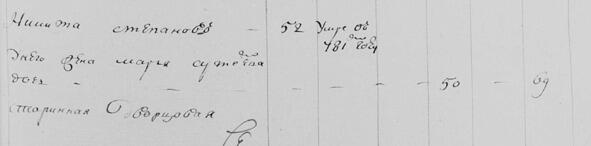 Никита степановъ — 52 Умре въ 781 годꙋ
Унего Жена марья сутеева
доч — — — — 50 — 69
старинная